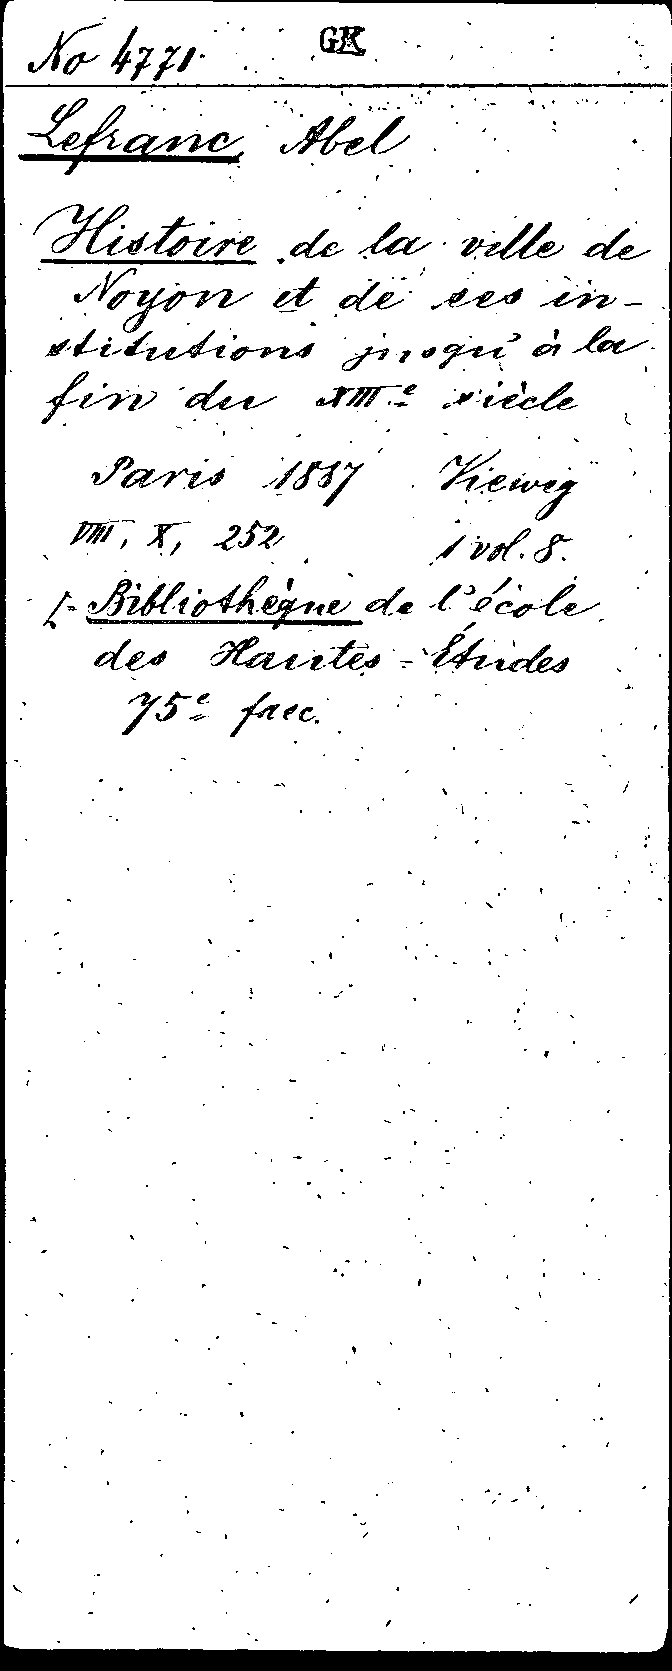 No 4771.
GK
Lefranc, Abel
Histoire de la ville de
Noyon et de ses in-
stitutions jusqu'à la
fin du XIIIe siècle
Paris 1887 Vieweg
VIII, X, 252
1 vol. 8.
[- Bibliothèque de l'école
des Hautes-Études
75e fasc.